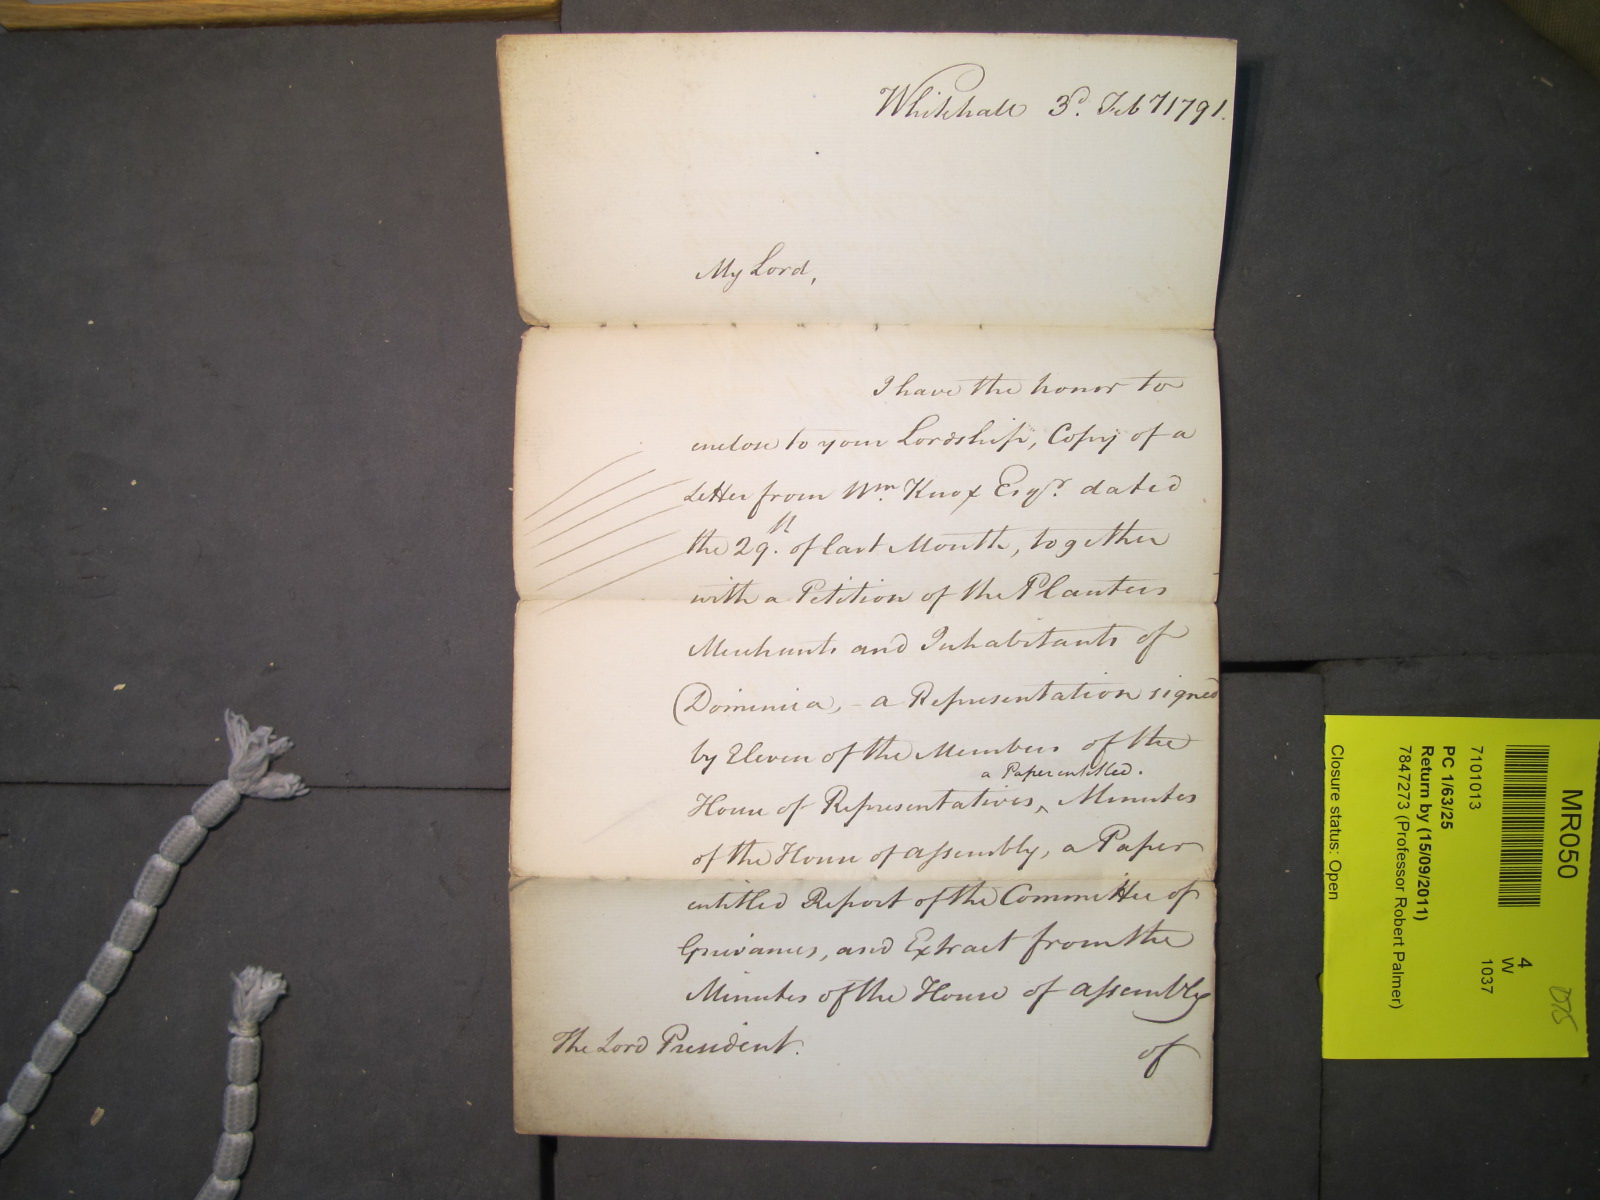 Whitehall 3d. Feby 1791.
My Lord,
I have the honor to
enclose to your Lordship, Copy of a
Letter from Wm. Knox Esqr. dated
the 29th. of last Month, together
with a Petition of the Planters
Merchants and Inhabitants of
Dominica, - a Representation signed
by Eleven of the Members of the
a Paper entitled.
House of Representatives, ^ Minutes
of the House of Assembly, a Paper
entitled Report of the Committee of
Grievances, and Extract from the
Minutes of the House of Assembly
The Lord President.
of
MR050
7101013
PC 1/63/25
Return by (15/09/2011)
7847273 (Professor Robert Palmer)
Closure status: Open
4
W
1037